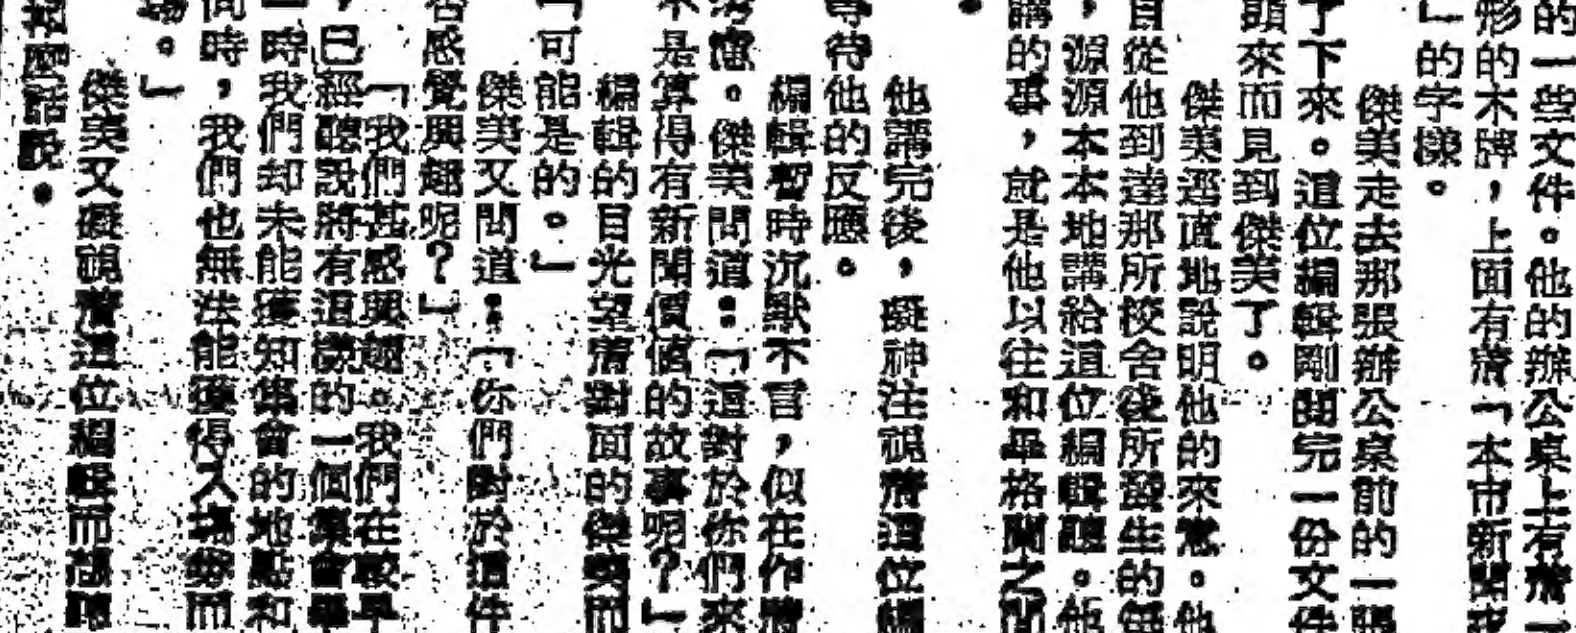 的一些文件。他的辦公桌上有着一
形的木牌，上面有着「本市新聞
」的字樣。
傑美走去那張辦公桌前的一張
了下來。這位編輯剛閱完一份文件
頭來而見到傑美了。
傑美逕直地說明他的來意。他
自從他到達那所校舍後所發生的每
，源源本本地講給這位編輯聽。他
講的事，就是他以往和畢格聞之間
。
他講完後，凝神注視着這位編
等待他的反應。
編輯暫時沉默不言，似在作着
考慮。傑美問道：「這對於你們來
不是算得有新聞價值的故事呢？」
編輯的目光望着對面的傑美而
「可能是的。」
傑美又問道：「你們對於這件
否感覺興趣呢？」
「我們甚感興趣。我們在較早
，已經聽說將有這樣的一個集會舉
一時我們却未能獲知集會的地點和
同時，我們也無法能獲得入場券而
場。」
傑美又凝視着這位編輯而
話說。